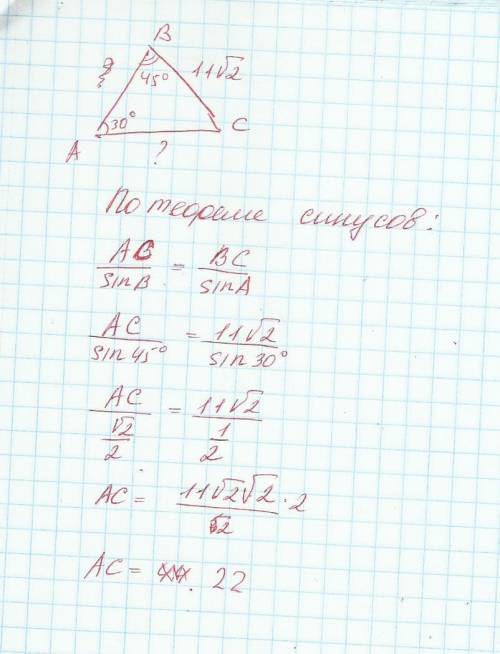 B
45° 11√2
30°
A ? C
По теореме синусов:
AC/sinB = BC/sinA
AC/sin45° = 11√2/sin30°
AC/(√2/2) = 11√2/(1/2)
AC = 11√2√2/2 · 2
AC = 22